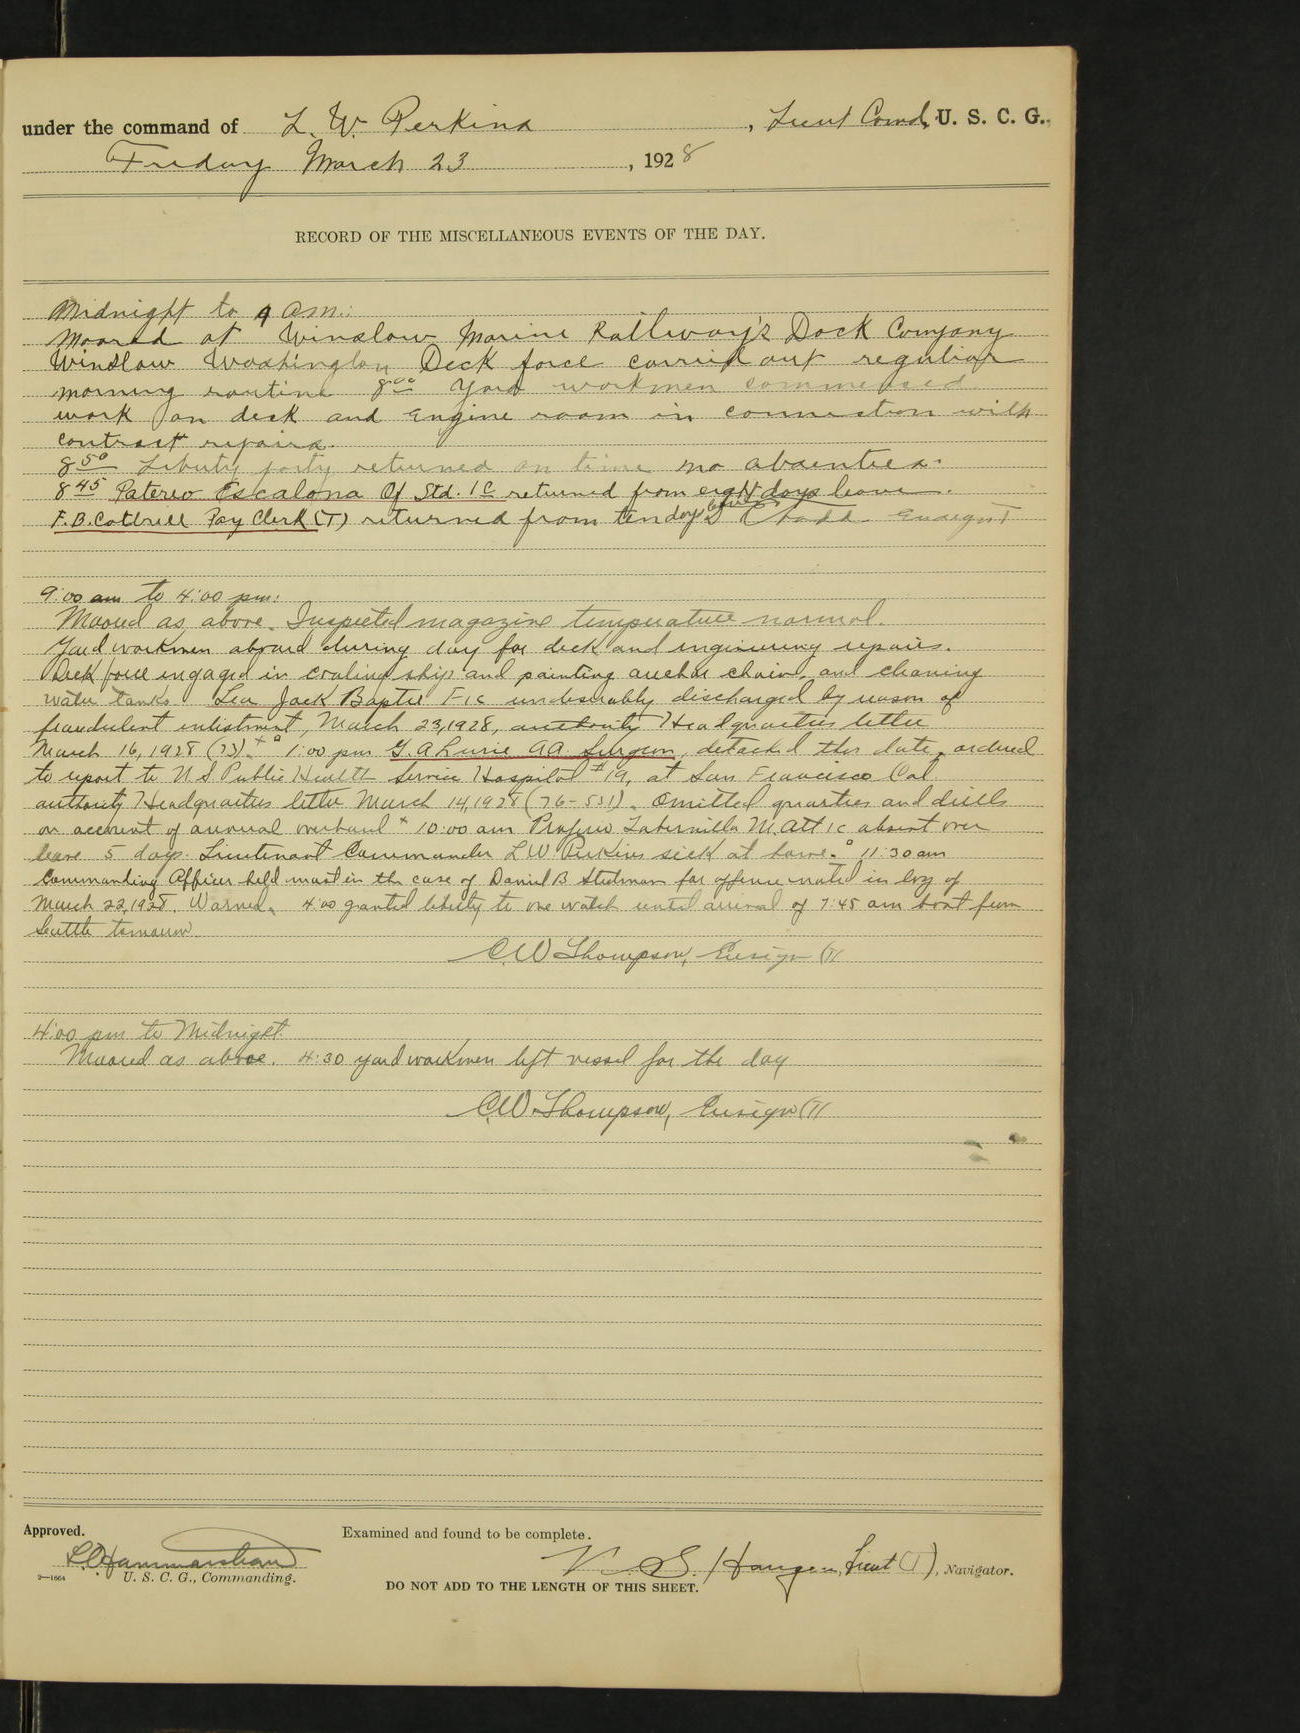 under the command of L. W. Perkins, Lieut Comd, U. S. C. G.
Friday March 23, 1928
RECORD OF THE MISCELLANEOUS EVENTS OF THE DAY.
Midnight to 9 am.:
Moored at Winslow Marine Railway's Dock Company
Winslow Washington Deck force carried out regular
morning routine 8 00 Yard workmen commenced
work on deck and Engine room in connection with
contract repairs.
8 50 Liberty party returned on time no absentees.
8 45 Patereo Escalona Of Std. 1c returned from eight days leave.
F. B. Cottrell Pay Clerk (T) returned from ten days leave Ensign T
9:00 am to 4:00 pm:
Moored as above. Inspected magazine temperature normal.
Yard workmen aboard during day for deck and engineering repairs.
Deck force engaged in coaling ship and painting anchor chain, and cleaning
water tanks. Jack Baptie F1c undesirably discharged by reason of
fraudulent enlistment, March 23, 1928, authority Headquarters letter
March 16, 1928 (73). x 1:00 pm G. A. Lurie A.A. Surgeon, detached this date, ordered
to report to U S Public Health Service Hospital #19, at San Francisco Cal
authority Headquarters letter March 14, 1928 (76-531). Omitted quarters and drills
on account of annual overhaul x 10:00 am Tabernilla M. Att 1c absent over
leave 5 days. Lieutenant Commander L W Perkins sick at home. 11:30 am
Commanding Officer held mast in the case of Daniel B Stedman for offense noted in log of
March 22, 1928. Warned. 4:00 granted liberty to one watch until arrival of 7:45 am boat from
Seattle tomorrow.
C. W. Thompson, Ensign (T)
4:00 pm to Midnight.
Moored as above. 4:30 yard workmen left vessel for the day
C. W. Thompson, Ensign (T)
Approved.
Examined and found to be complete.
U. S. C. G., Commanding.
Lieut (T), Navigator.
2—1664
DO NOT ADD TO THE LENGTH OF THIS SHEET.